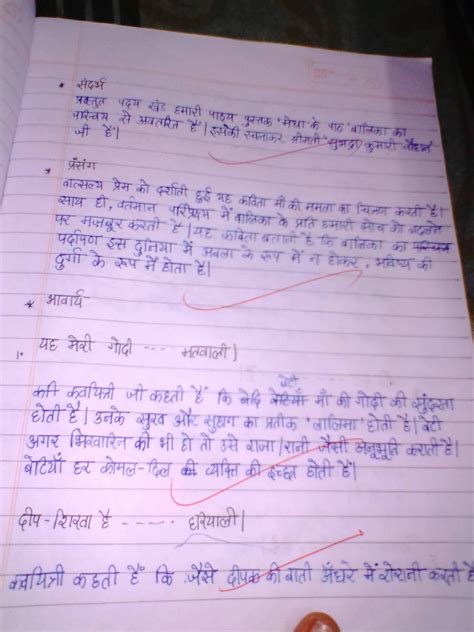 * संदर्भ
प्रस्तुत पद्य खंड हमारी पाठ्य पुस्तक 'मेधा' के पाठ 'बालिका का
परिचय' से अवतरित है। इसकी रचनाकार श्रीमती सुभद्रा कुमारी चौहान
जी हैं।
* प्रसंग
वात्सल्य प्रेम को दर्शाती हुई यह कविता माँ की ममता का चित्रण करती है।
साथ ही, वर्तमान परिप्रेक्ष्य में बालिका के प्रति हमारी सोच को बदलने
पर मजबूर करती है। यह कविता बताती है कि बालिका का
पर्दापण इस दुनिया में अबला के रूप में न होकर, भविष्य की
दुर्गा के रूप में होता है।
* भावार्थ
1. यह मेरी गोदी --- मतवाली।
बेटी
कवयित्री जी कहती हैं कि बेटियाँ माँ की गोदी की सुंदरता
होती हैं। उनके सुख और सुहाग का प्रतीक 'लालिमा' होती है। बेटी
अगर भिखारिन की भी हो तो उसे राजा/रानी जैसी अनुभूति कराती है।
बेटियाँ हर कोमल-दिल व्यक्ति की इच्छा होती हैं।
दीप-शिखा है ----- हरियाली।
कवयित्री कहती हैं कि जैसे दीपक की बाती अँधेरे में रोशनी करती है